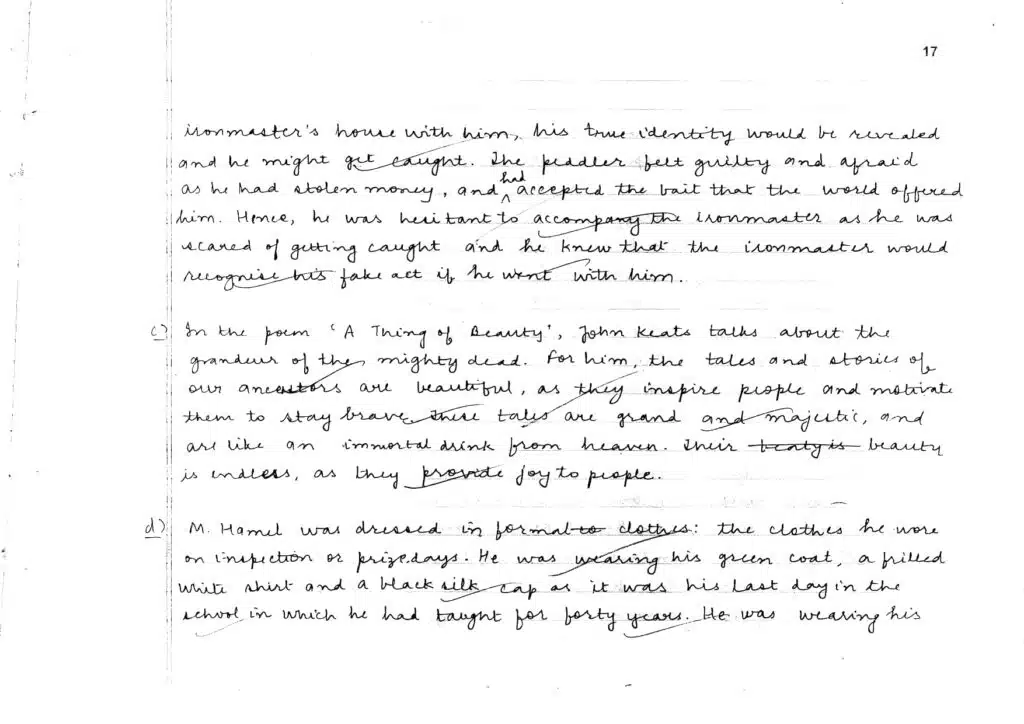 17
ironmaster's house with him, his true identity would be revealed
and he might get caught. The peddler felt guilty and afraid
as he had stolen money, and had accepted the bait that the world offered
him. Hence, he was hesitant to accompany the ironmaster as he was
scared of getting caught and he knew that the ironmaster would
recognise his fake act if he went with him.
c) In the poem 'A Thing of Beauty', John Keats talks about the
grandeur of the mighty dead. For him, the tales and stories of
our ancestors are beautiful, as they inspire people and motivate
them to stay brave. These tales are grand and majestic, and
are like an immortal drink from heaven. Their beaty is beauty
is endless, as they provide joy to people.
d) M. Hamel was dressed in formal to clothes: the clothes he wore
on inspection or prize days. He was wearing his green coat, a frilled
white shirt and a black silk cap as it was his last day in the
school in which he had taught for forty years. He was wearing his